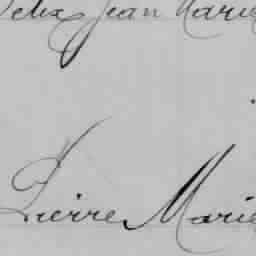 Felix Jean Marie
Pierre Marie